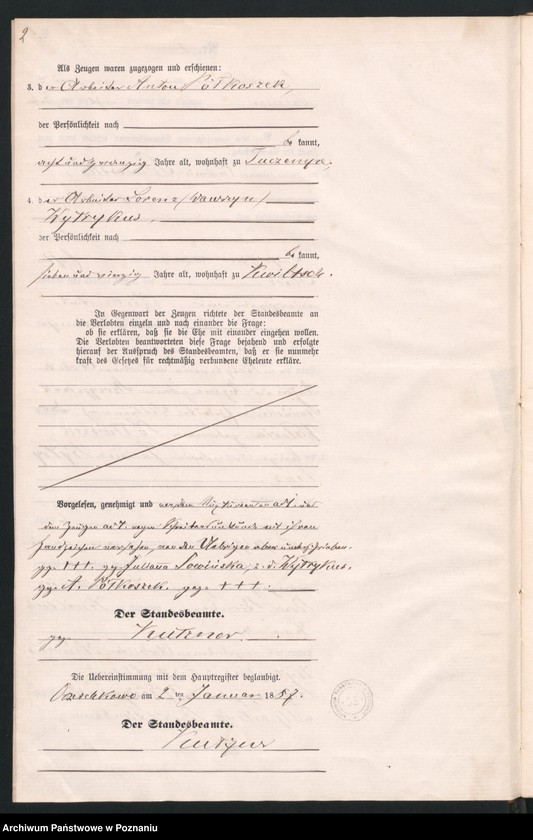 2
Als Zeugen waren zugezogen und erschienen:
3. der Arbeiter Anton Potkoszek,
der Persönlichkeit nach
be kannt,
acht und zwanzig Jahre alt, wohnhaft zu
4. der Arbeiter Lorenz (Wawrzyn)
Kytrykus
der Persönlichkeit nach
be kannt,
sieben und vierzig Jahre alt, wohnhaft zu Kwiltsch.
In Gegenwart der Zeugen richtete der Standesbeamte an
die Verlobten einzeln und nach einander die Frage:
ob sie erklären, daß sie die Ehe mit einander eingehen wollen.
Die Verlobten beantworteten diese Frage bejahend und erfolgte
hierauf der Ausspruch des Standesbeamten, daß er sie nunmehr
kraft des Gesetzes für rechtmäßig verbundene Eheleute erkläre.
Vorgelesen, genehmigt und von dem ad 1. und
dem Zeugen ad 4. wegen Schreibensunkunde mit ihren
Handzeichen versehen, von den Uebrigen aber unterschrieben.
gez. +++. gez. Juliana z. d. Kytrykus.
gez. A. Potkoszek. gez. +++.
Der Standesbeamte.
gez. Kutzner.
Die Uebereinstimmung mit dem Hauptregister beglaubigt.
am 2 ten Januar 1887.
Der Standesbeamte.
Kutzner
Archiwum Państwowe w Poznaniu